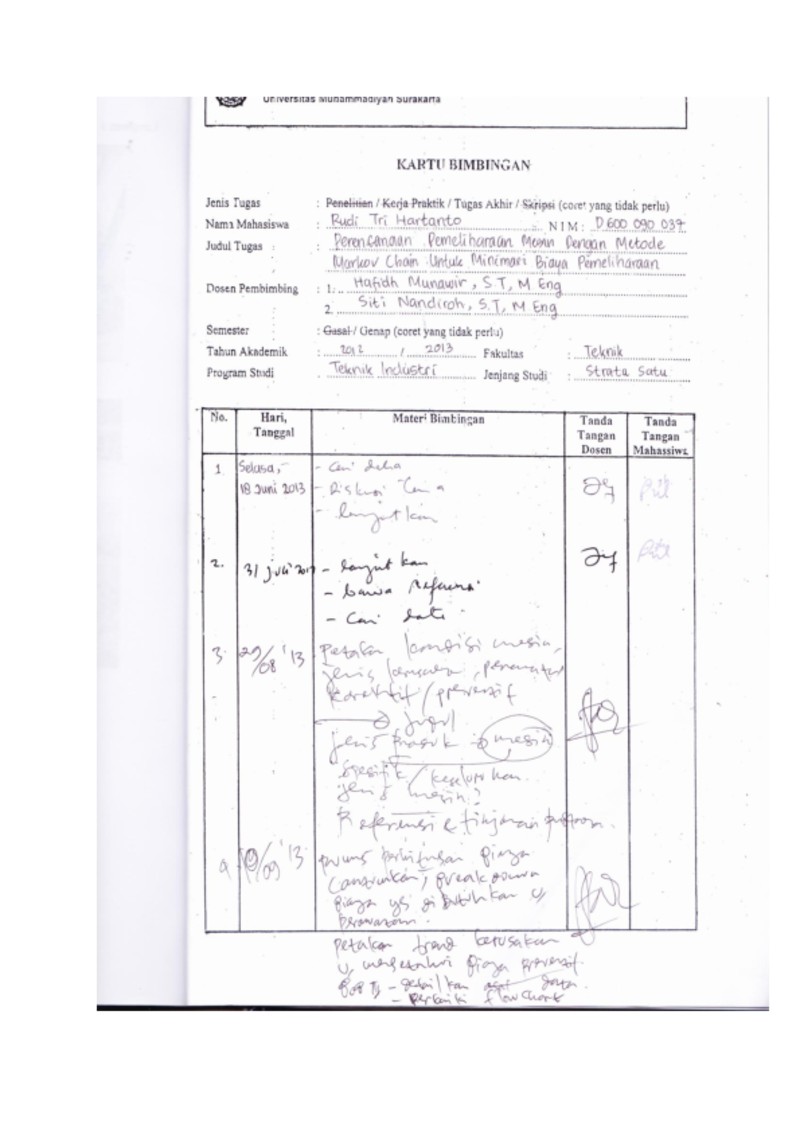 Universitas Muhammadiyah Surakarta
KARTU BIMBINGAN
Jenis Tugas : Penelitian / Kerja Praktik / Tugas Akhir / Skripsi (coret yang tidak perlu)
Nama Mahasiswa : Rudi Tri Hartanto NIM : D 600 090 037
Judul Tugas : Perencanaan Pemeliharaan Mesin Dengan Metode
Markov Chain Untuk Minimasi Biaya Pemeliharaan
Dosen Pembimbing : 1. Hafidh Munawir, S.T, M Eng
2. Siti Nandiroh, S.T, M Eng
Semester : Gasal / Genap (coret yang tidak perlu)
Tahun Akademik : 2012 / 2013 Fakultas : Teknik
Program Studi : Teknik Industri Jenjang Studi : Strata Satu
No. Hari, Tanggal Materi Bimbingan Tanda Tangan Dosen Tanda Tangan Mahasiswa
1. Selasa, - Cari data
18 Juni 2013 - Diskusi
- lanjutkan
2. 31 Juli - lanjutkan
- bawa Referensi
- Cari data
3. 29/08 '13 Petakan kondisi mesin,
jenis
korektif / preventif
jenis mesin
spesifik / keseluruhan
jenis mesin?
Referensi & tinjauan pustaka.
09 '13 biaya
biaya yg dibutuhkan
perawatan.
petakan trend kerusakan
biaya preventif
data.
- Perbaiki flowchart